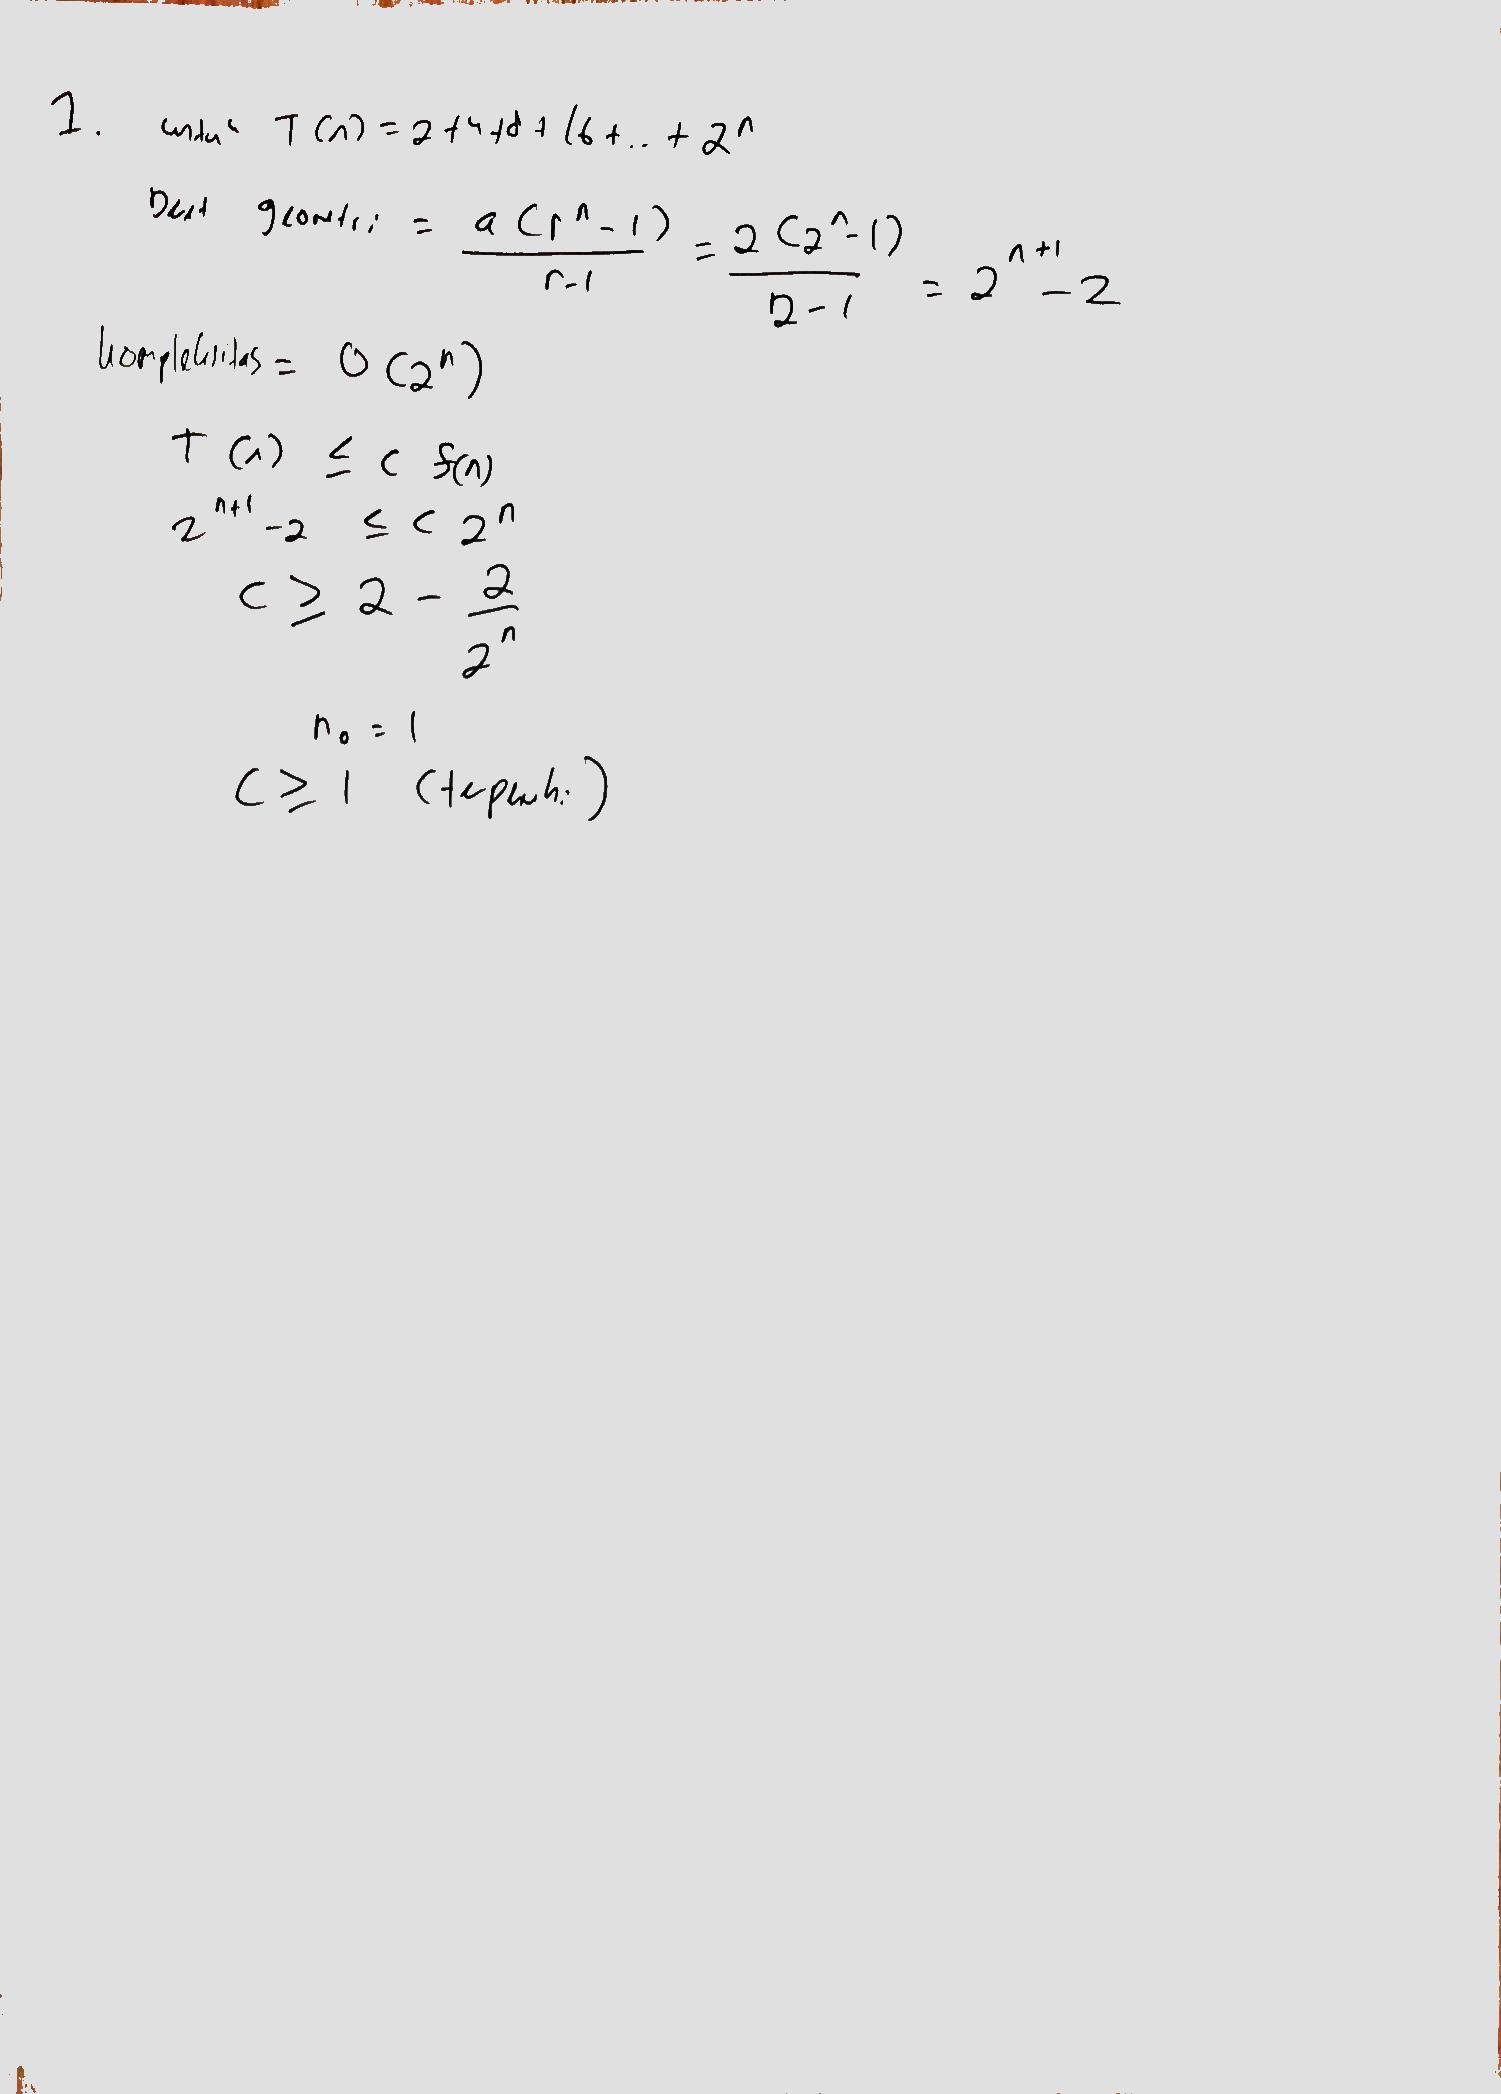 1. untuk T(n) = 2+4+8+16+..+2^n
Deret geometri = a(r^n-1)/(r-1) = 2(2^n-1)/(2-1) = 2^(n+1) - 2
kompleksitas = O(2^n)
T(n) ≤ C f(n)
2^(n+1) - 2 ≤ C 2^n
C ≥ 2 - 2/2^n
n₀ = 1
C ≥ 1 (terpenuhi)